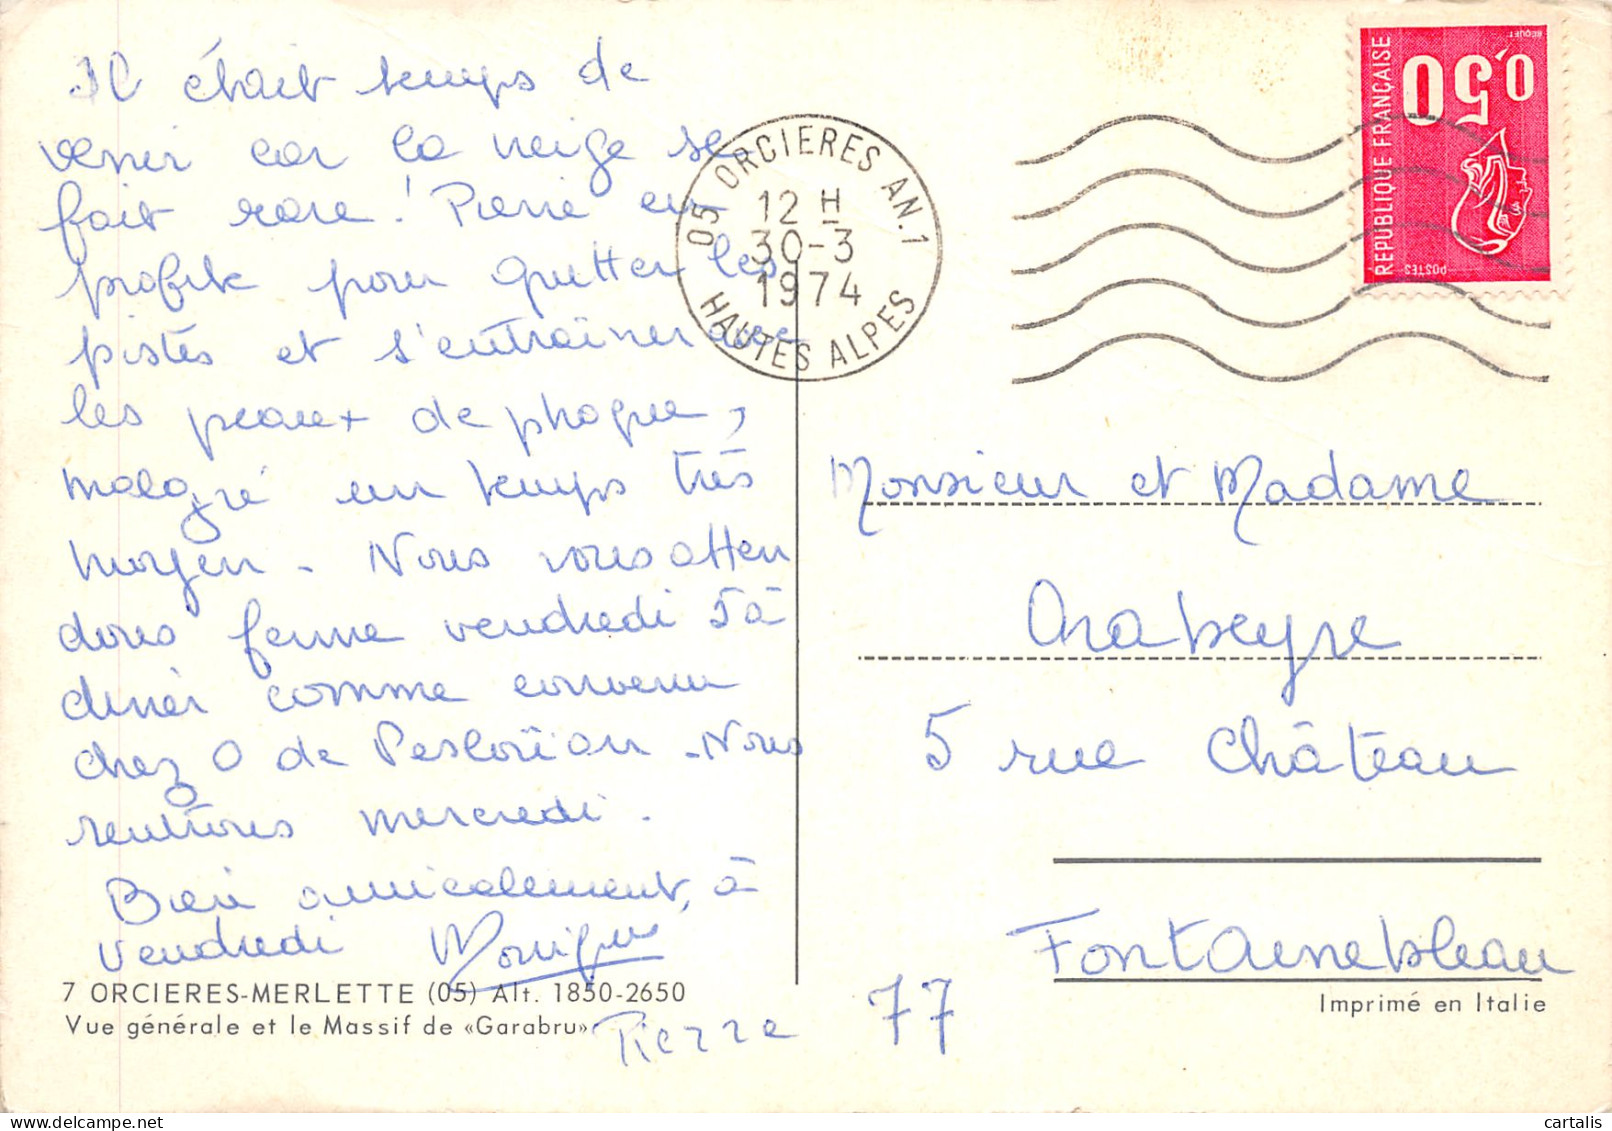 Il était temps de
venir car la neige se
fait rare ! Pierre en
profite pour quitter les
pistes et s'entraîner avec
les peaux de phoque,
malgré un temps très
moyen - Nous vous atten
dons ferme vendredi 5 à
diner comme convenu
chez O de Nous
rentrons mercredi.
Bien amicalement, à
vendredi Monique
Pierre
7 ORCIERES-MERLETTE (05) Alt. 1850-2650
Vue générale et le Massif de «Garabru»
05 ORCIERES AN.1
12 H
30-3
1974
HAUTES ALPES
REPUBLIQUE FRANÇAISE
0,50
POSTES
BEQUET
Monsieur et Madame
Arabeyre
5 rue Château
Fontainebleau
77
Imprimé en Italie
cartalis